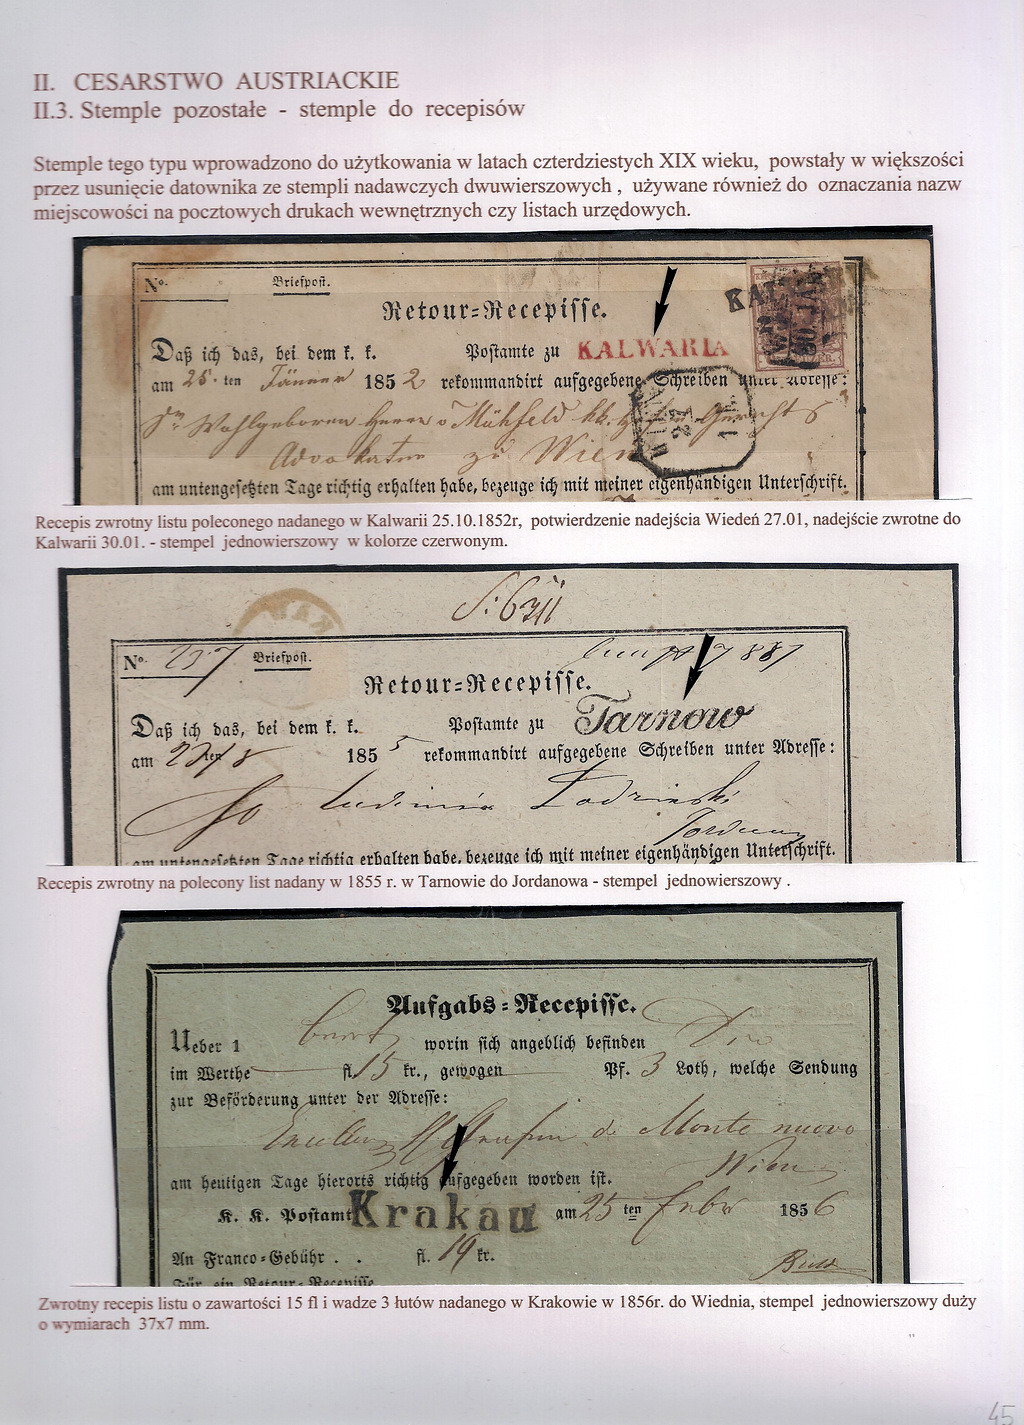 II. CESARSTWO AUSTRIACKIE
II.3. Stemple pozostałe - stemple do recepisów
Stemple tego typu wprowadzono do użytkowania w latach czterdziestych XIX wieku, powstały w większości
przez usunięcie datownika ze stempli nadawczych dwuwierszowych , używane również do oznaczania nazw
miejscowości na pocztowych drukach wewnętrznych czy listach urzędowych.
No. Briefpost.
Retour=Recepisse.
Daß ich das, bei dem k. k. Postamte zu KALWARIA
am 25. ten Jänner 1852 rekommandirt aufgegebene Schreiben unter Adresse:
Wohlgeboren Herrn v Mühfeld kk.
Advokaten zu Wien
am untengesetzten Tage richtig erhalten habe, bezeuge ich mit meiner eigenhändigen Unterschrift.
Recepis zwrotny listu poleconego nadanego w Kalwarii 25.10.1852r, potwierdzenie nadejścia Wiedeń 27.01, nadejście zwrotne do
Kalwarii 30.01. - stempel jednowierszowy w kolorze czerwonym.
No. Briefpost.
Retour=Recepisse.
Daß ich das, bei dem k. k. Postamte zu Tarnow
am ten 1855 rekommandirt aufgegebene Schreiben unter Adresse:
am untengesetzten Tage richtig erhalten habe, bezeuge ich mit meiner eigenhändigen Unterschrift.
Recepis zwrotny na polecony list nadany w 1855 r. w Tarnowie do Jordanowa - stempel jednowierszowy .
Aufgabs=Recepisse.
Ueber 1 worin sich angeblich befinden
im Werthe fl. 15 kr., gewogen Pf. 3 Loth, welche Sendung
zur Beförderung unter der Adresse:
de Monte nuovo
Wien
am heutigen Tage hierorts richtig aufgegeben worden ist.
K. K. Postamt Krakau am 25 ten Febr 1856
An Franco=Gebühr . . fl. 19 kr.
Für ein Retour=Recepisse
Zwrotny recepis listu o zawartości 15 fl i wadze 3 łutów nadanego w Krakowie w 1856r. do Wiednia, stempel jednowierszowy duży
o wymiarach 37x7 mm.
45